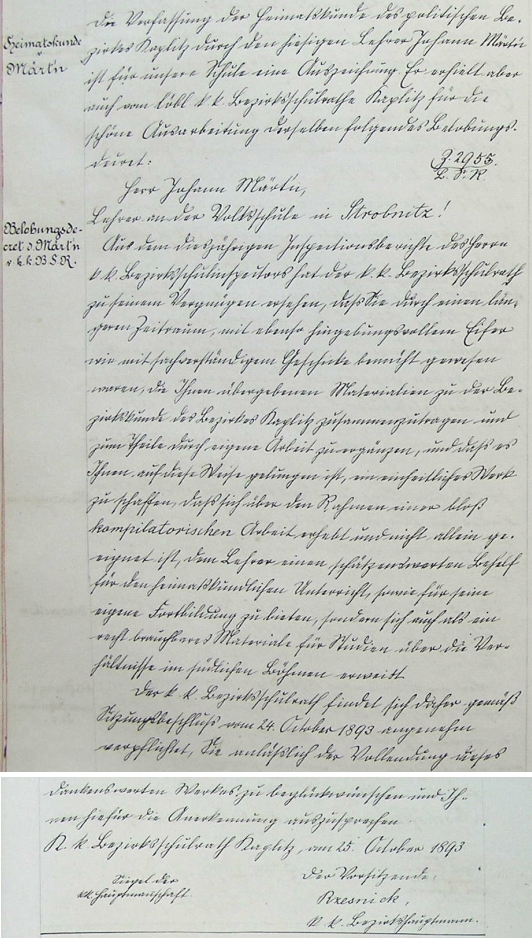 Heimatskunde
v. Märt'n
die Verfassung der Heimatskunde des politischen Be-
zirkes Kaplitz durch den hiesigen Lehrer Johann Märt'n
ist für unsere Schule eine Auszeichnung. Er erhielt aber
auch vom löbl. k. k. Bezirksschulrathe Kaplitz für die
schöne Ausarbeitung derselben folgendes Belobungs-
decret:
Z. 2955.
B. S. R.
Herr Johann Märt'n,
Lehrer an der Volksschule in Strobnitz!
Belobungsde-
cret d. Märt'n
v. k. k. B. S. R.
Aus dem diesjährigen Inspectionsberichte des Herrn
k. k. Bezirksschulinspectors hat der k. k. Bezirksschulrath
zu seinem Vergnügen ersehen, dass Sie durch einen län-
geren Zeitraum, mit ebenso hingebungsvollem Eifer
wie mit sachverständigem Geschicke bemüht gewesen
waren, die Ihnen übergebenen Materialien zu der Be-
zirkskunde des Bezirkes Kaplitz zusammenzutragen und
zum Theile durch eigene Arbeit zu ergänzen, und dass es
Ihnen auf diese Weise gelungen ist, ein einheitliches Werk
zu schaffen, dass sich über den Rahmen einer bloß
kompilatorischen Arbeit erhebt und nicht allein ge-
eignet ist, dem Lehrer einen schätzenswerten Behelf
für den heimatskundlichen Unterricht, sowie für seine
eigene Fortbildung zu bieten, sondern sich auch als ein
recht brauchbares Materiale für Studien über die Ver-
hältnisse im südlichen Böhmen erweist.
Der k. k. Bezirksschulrath findet sich daher gemäß
Sitzungsbeschluss vom 24. October 1893 angenehm
verpflichtet, Sie anlässlich der Vollendung dieses
dankenswerten Werkes zu beglückwünschen und Ih-
nen hiefür die Anerkennung auszusprechen.
K. k. Bezirksschulrath Kaplitz, am 25. October 1893
Siegel der
k.k. Hauptmannschaft
Der Vorsitzende:
Rzesnick,
k. k. Bezirkshauptmann.